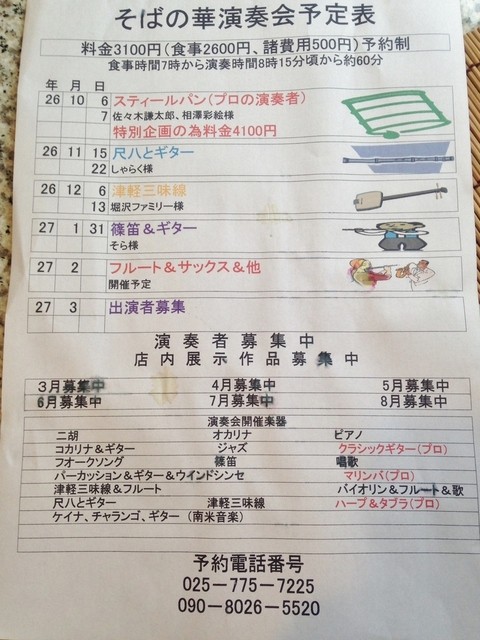 そばの華演奏会予定表
料金3100円(食事2600円、諸費用500円)予約制
食事時間7時から演奏時間8時15分頃から約60分
年 月 日
26 10 6 スティールパン(プロの演奏者)
7 佐々木謙太郎、相澤彩絵様
特別企画の為料金4100円
26 11 15 尺八とギター
22 しゃらく様
26 12 6 津軽三味線
13 堀沢ファミリー様
27 1 31 篠笛&ギター
そら様
27 2 フルート&サックス&他
開催予定
27 3 出演者募集
演奏者募集中
店内展示作品募集中
3月募集中 4月募集中 5月募集中
6月募集中 7月募集中 8月募集中
演奏会開催楽器
二胡 オカリナ ピアノ
コカリナ&ギター ジャズ クラシックギター(プロ)
フオークソング 篠笛 唱歌
パーカッション&ギター&ウインドシンセ マリンバ(プロ)
津軽三味線&フルート バイオリン&フルート&歌
尺八とギター 津軽三味線 ハープ&タブラ(プロ)
ケイナ、チャランゴ、ギター (南米音楽)
予約電話番号
025-775-7225
090-8026-5520